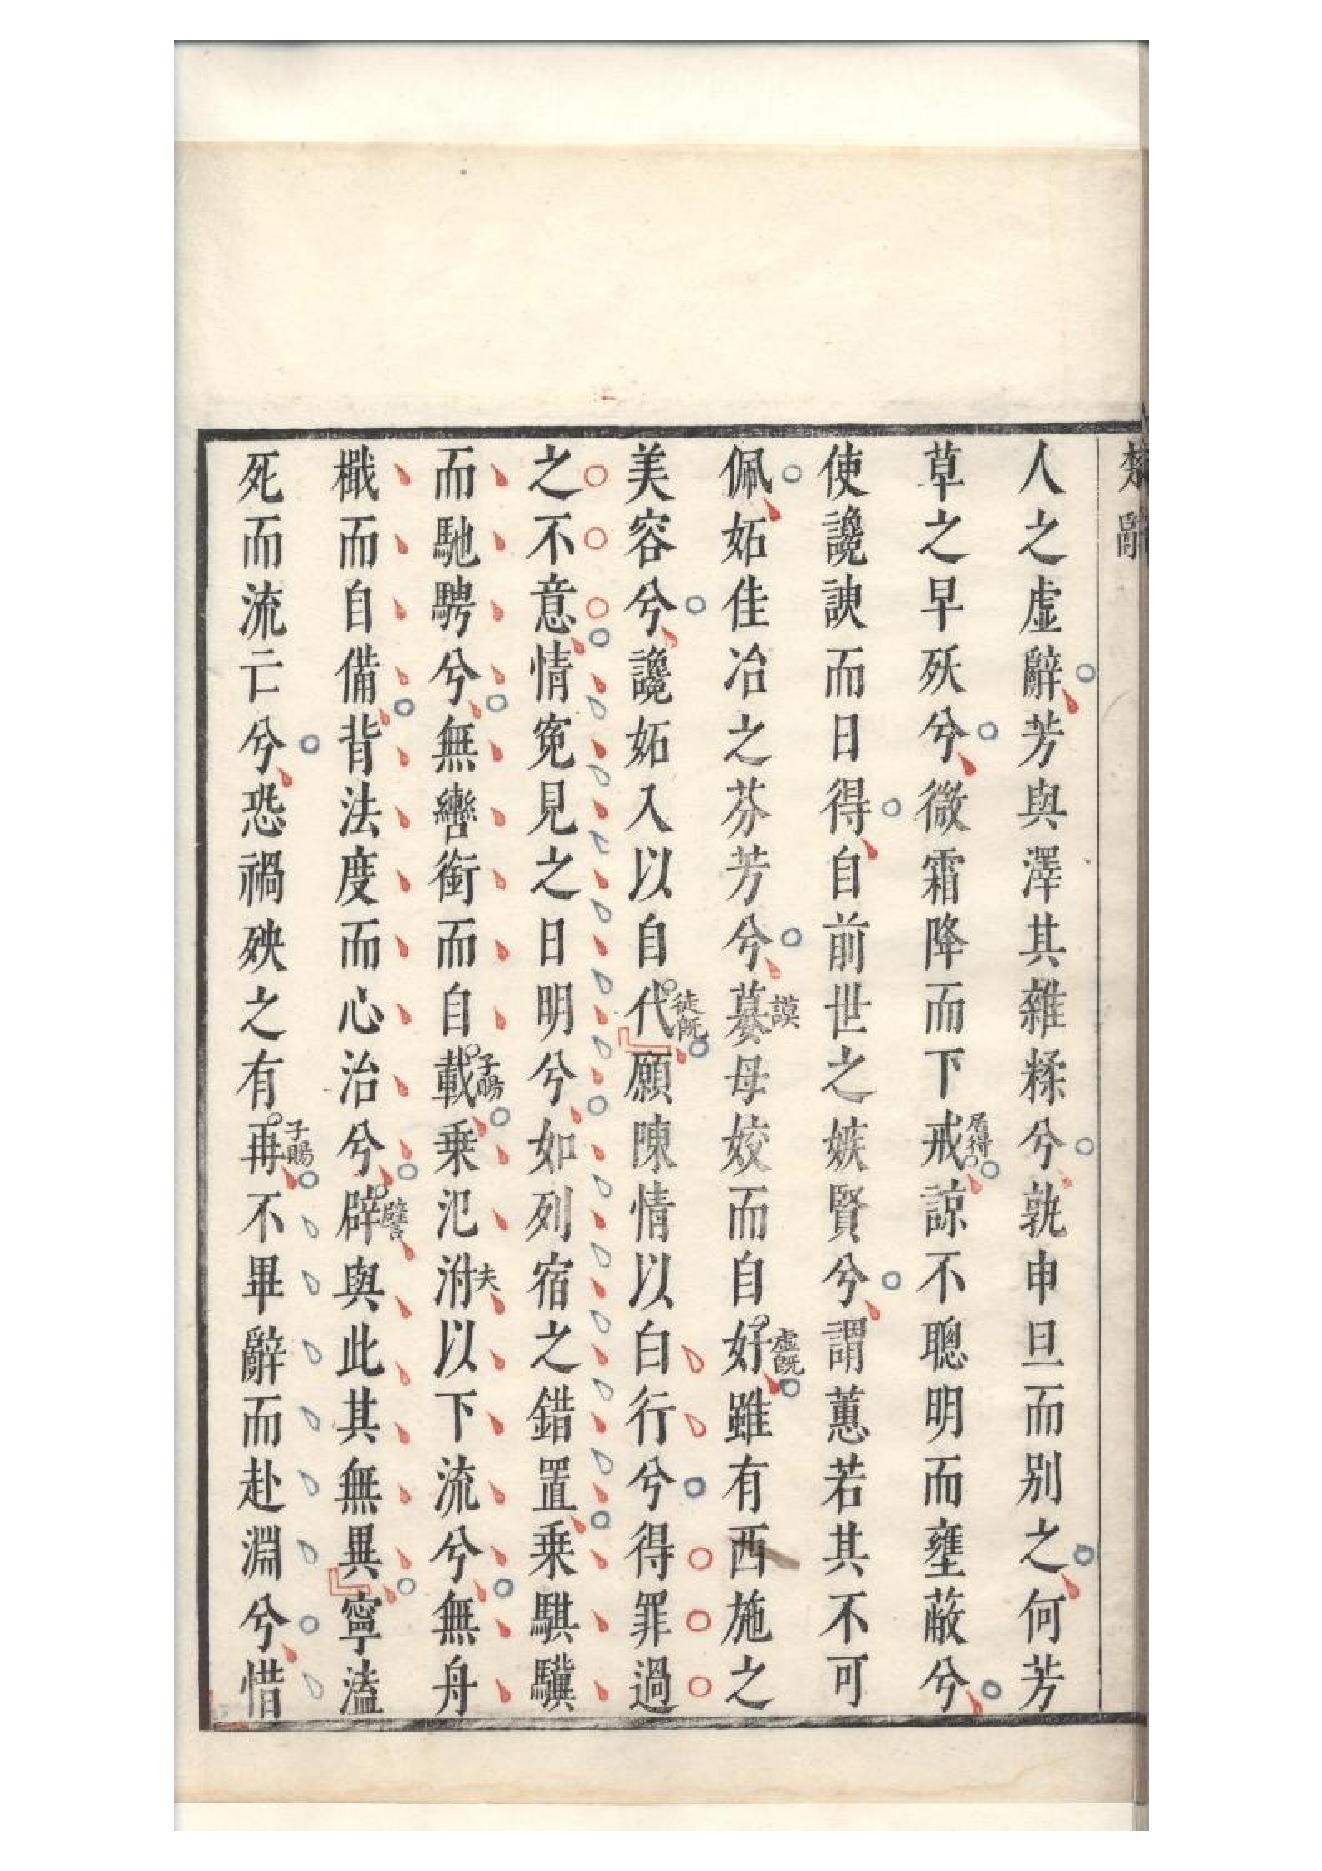 楚辭
人之虛辭芳與澤其雜糅兮孰申旦而別之何芳
草之早殀兮微霜降而下戒居得諒不聰明而壅蔽兮
使讒諛而日得自前世之嫉賢兮謂蕙若其不可
佩妬佳冶之芬芳兮嫫謨母姣而自好虛旣雖有西施之
美容兮讒妬入以自代徒旣願陳情以白行兮得罪過
之不意情寃見之日明兮如列宿之錯置乘騏驥
而馳騁兮無轡銜而自載子賜乘氾泭夫以下流兮無舟
檝而自備背法度而心治兮辟譬與此其無異寧溘
死而流亡兮恐禍殃之有再子賜不畢辭而赴淵兮惜